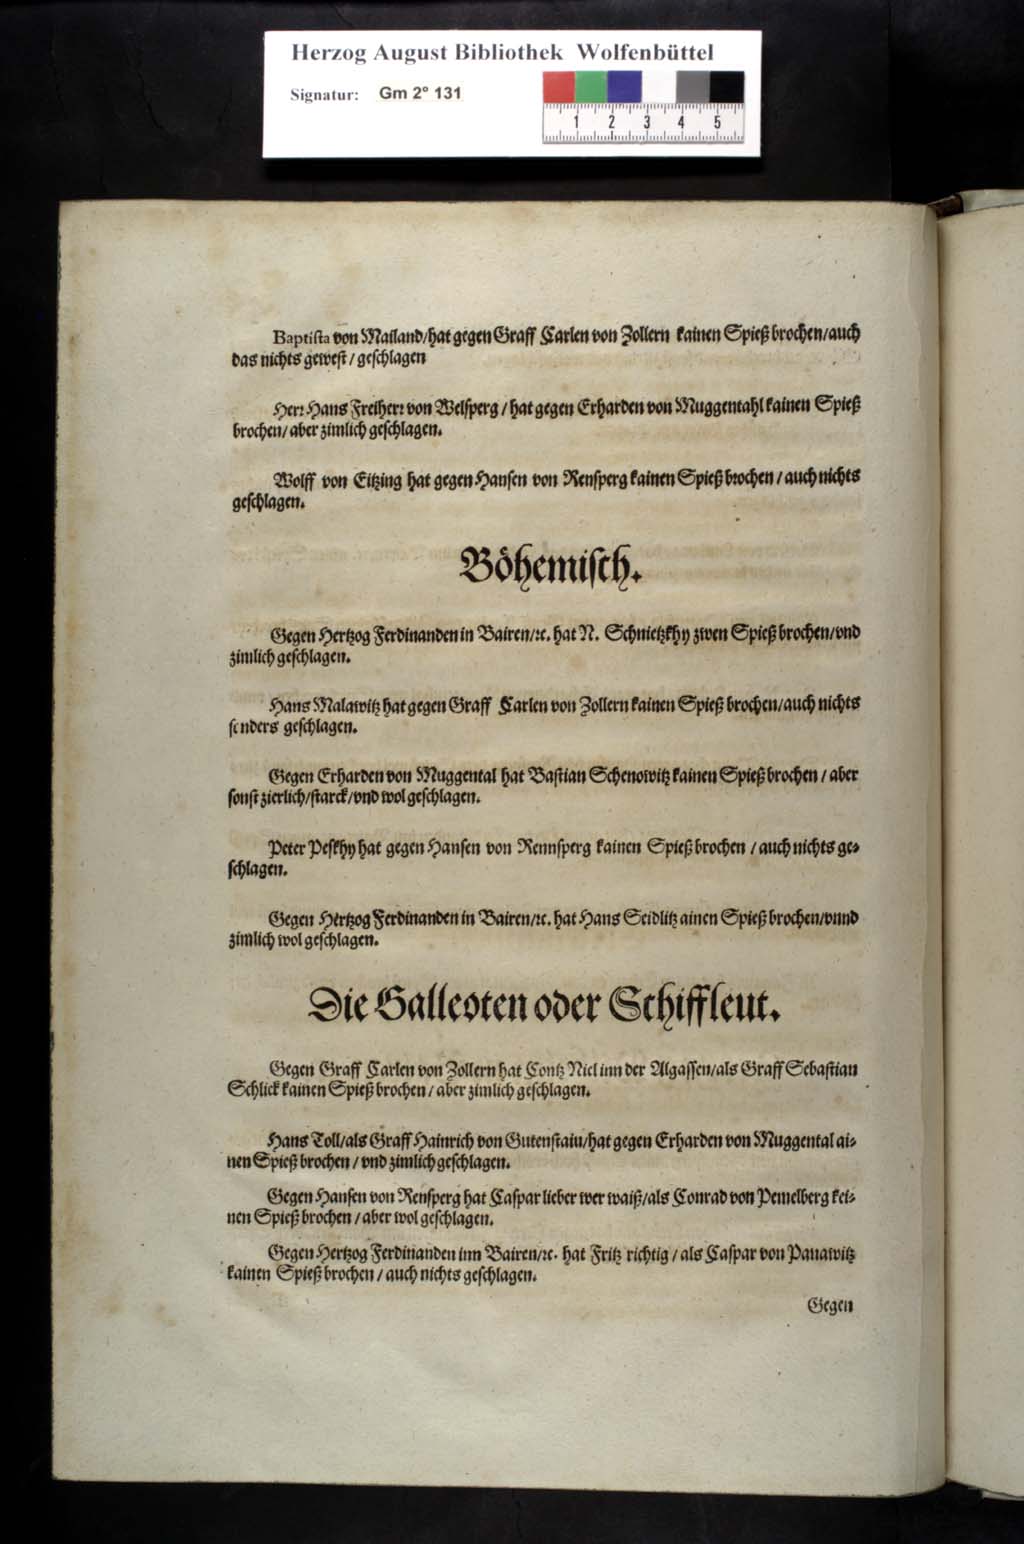 Herzog August Bibliothek Wolfenbüttel
Signatur: Gm 2° 131
1 2 3 4 5
Baptista von Mailand/hat gegen Graff Carlen von Zollern kainen Spieß brochen/auch
das nichts gewest / geschlagen
Herr Hans Freiherr von Welsperg / hat gegen Erharden von Muggentahl kainen Spieß
brochen/ aber zimlich geschlagen.
Wolff von Eitzing hat gegen Hansen von Rensperg kainen Spieß brochen / auch nichts
geschlagen.
Böhemisch.
Gegen Hertzog Ferdinanden in Bairen/ꝛc. hat N. Schnietzkhy zwen Spieß brochen/vnd
zimlich geschlagen.
Hans Malawitz hat gegen Graff Carlen von Zollern kainen Spieß brochen/auch nichts
sonders geschlagen.
Gegen Erharden von Muggental hat Bastian Schenowitz kainen Spieß brochen / aber
sonst zierlich/starck/vnd wol geschlagen.
Peter Peskhy hat gegen Hansen von Rennsperg kainen Spieß brochen / auch nichts ge⸗
schlagen.
Gegen Hertzog Ferdinanden in Bairen/ꝛc. hat Hans Seidlitz ainen Spieß brochen/vnnd
zimlich wol geschlagen.
Die Galleoten oder Schiffleut.
Gegen Graff Carlen von Zollern hat Contz Niel inn der Algassen/als Graff Sebastian
Schlick kainen Spieß brochen / aber zimlich geschlagen.
Hans Toll/als Graff Hainrich von Gutenstain/hat gegen Erharden von Muggental ai⸗
nen Spieß brochen / vnd zimlich geschlagen.
Gegen Hansen von Rensperg hat Caspar lieber wer waiß/als Conrad von Pemelberg kei⸗
nen Spieß brochen / aber wol geschlagen.
Gegen Hertzog Ferdinanden inn Bairen/ꝛc. hat Fritz richtig / als Caspar von Panawitz
kainen Spieß brochen / auch nichts geschlagen.
Gegen